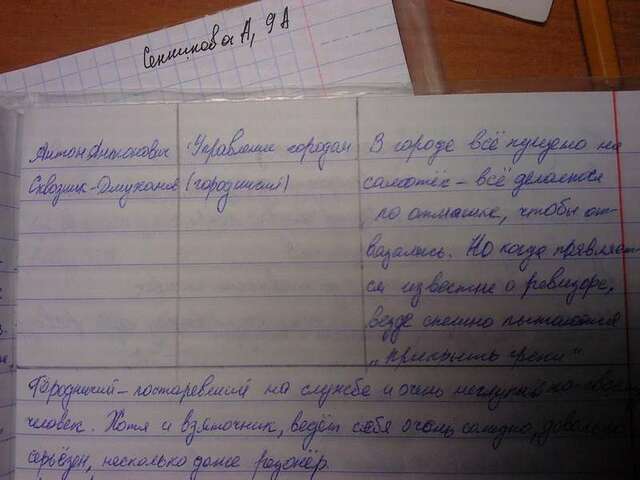 Сенникова А, 9 А
Антон Антонович
Сквозник-Дмухановс
Управление городом
(городничий)
В городе всё пущено на
самотёк – всё делается
по отмашке, чтобы от-
вязались. Но когда появляет-
ся известие о ревизоре,
везде спешно пытаются
„прикрыть грехи“
Городничий – постаревший на службе и очень неглупый по-своему
человек. Хотя и взяточник, ведёт себя очень солидно, довольно
серьёзен, несколько даже резонёр.